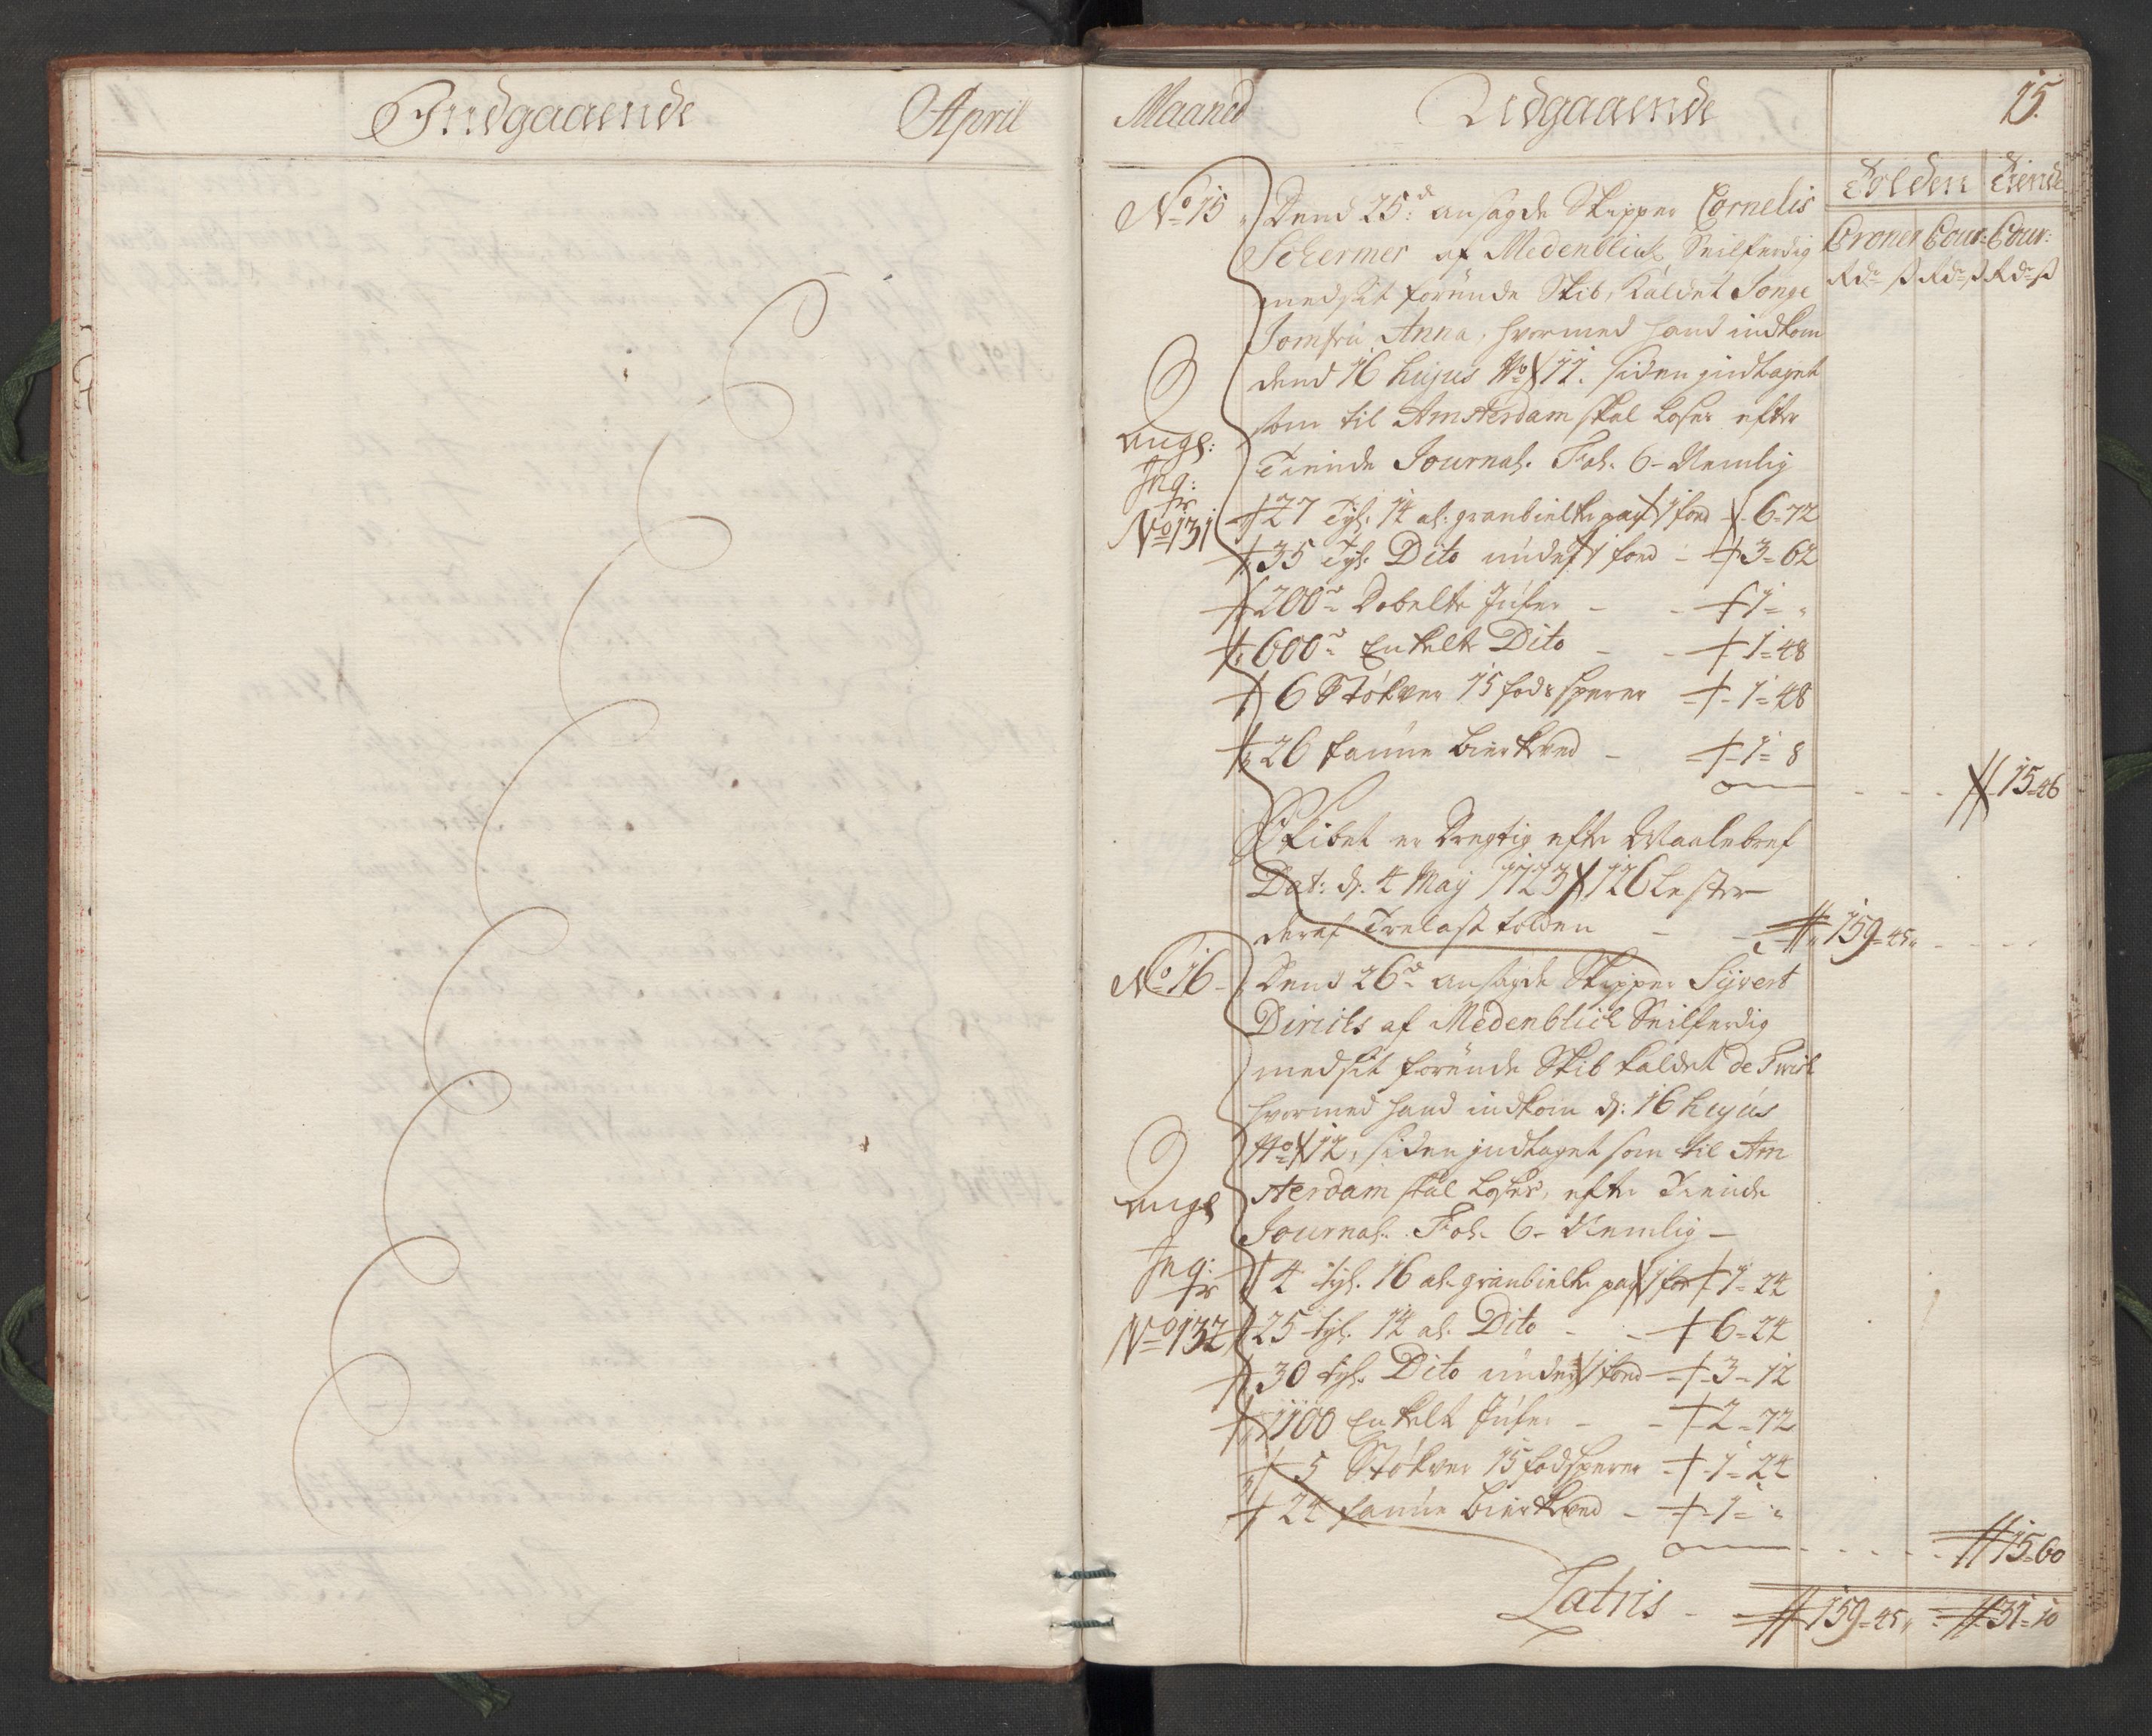 Indgaaende April
Maaned Udgaaende 15.
Tolden Tiende
Croner Cour: Cour:
Rdr ß Rdr ß Rdr ß
No 15 Dend 25d: ansagde Skipper Cornelis
Schermer af Medenblick Seilferdig
med sit førende Skib, kaldet Jonge
Jomfru Anna, hvormed hand indkom
dend 16 hujus No 11. siden indtaget
som til Amsterdam skal løses efter
Tiende Journal. Fol. 6 - Nemlig
Angl:
Inq:
fr
No 131
27 Tyl. 14 al: granbielker paa 1 foed - 6=72
35 Tyl. Dito under 1 foed - 3=62
200de Dobelte Jufer - - 1= "
600de Enkelte Dito - - 1=48
6 Støkver 15 fods sperer - 1=48
26 faune birkeved - 1=8
15=46
Skibet er Dregtig efter Maalebref
Dat: d. 4 Maij 1723 126 Lester
deraf Trelast tolden - - 159=45
No 16 - Dend 26de ansagde Skipper Sijvert
Diricks af Medenblick Seilferdig
med sit førende Skib kaldet de
hvormed hand indkom d: 16 hujus
No 12, siden indtaget som til Am
sterdam skal løses, efter Tiende
Journal. Fol. 6 - Nemlig -
Angl
Inq:
fr
No 132
4 tyl. 16 al. granbielker paa 1 foed 1=24
25 tyl. 14 al. Dito - - 6=24
30 tyl. Dito under 1 foed - 3=12
1100 Enkelte Jufer - - 2=72
5 Støkver 15 fods sperer - 1=24
24 faune birkeved - 1= "
15=60
Latris - 159=45 31=10